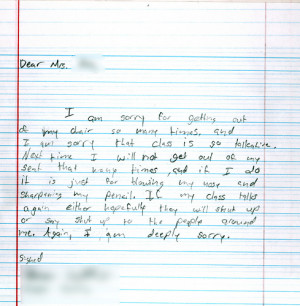 Dear Mrs.
I am sorry for getting out
of my chair so many times, and
I am sorry that class is so talkative.
Next time I will not get out of my
seat that many times and if I do
it is just for blowing my nose and
sharpening my pencil. If my class talks
again either hopefully they will shut up
or say shut up to the people around
me. Again, I am deeply sorry.
Signed